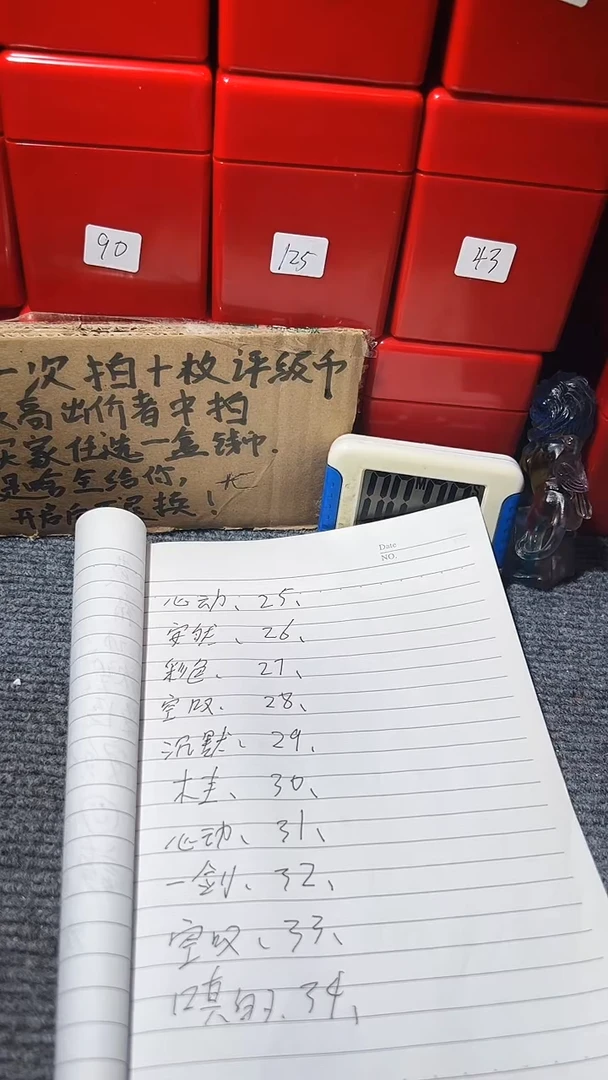 90
125
43
一次拍十枚评级币
最高出价者中拍
买家任选一盒钱币.
是啥全给你,
开启后不退换!
Date
NO.
心动、25、
安然、26、
彩色、27、
空叹、28、
沉默、29、
木圭、30、
心动、31、
一剑、32、
空叹、33、
34、